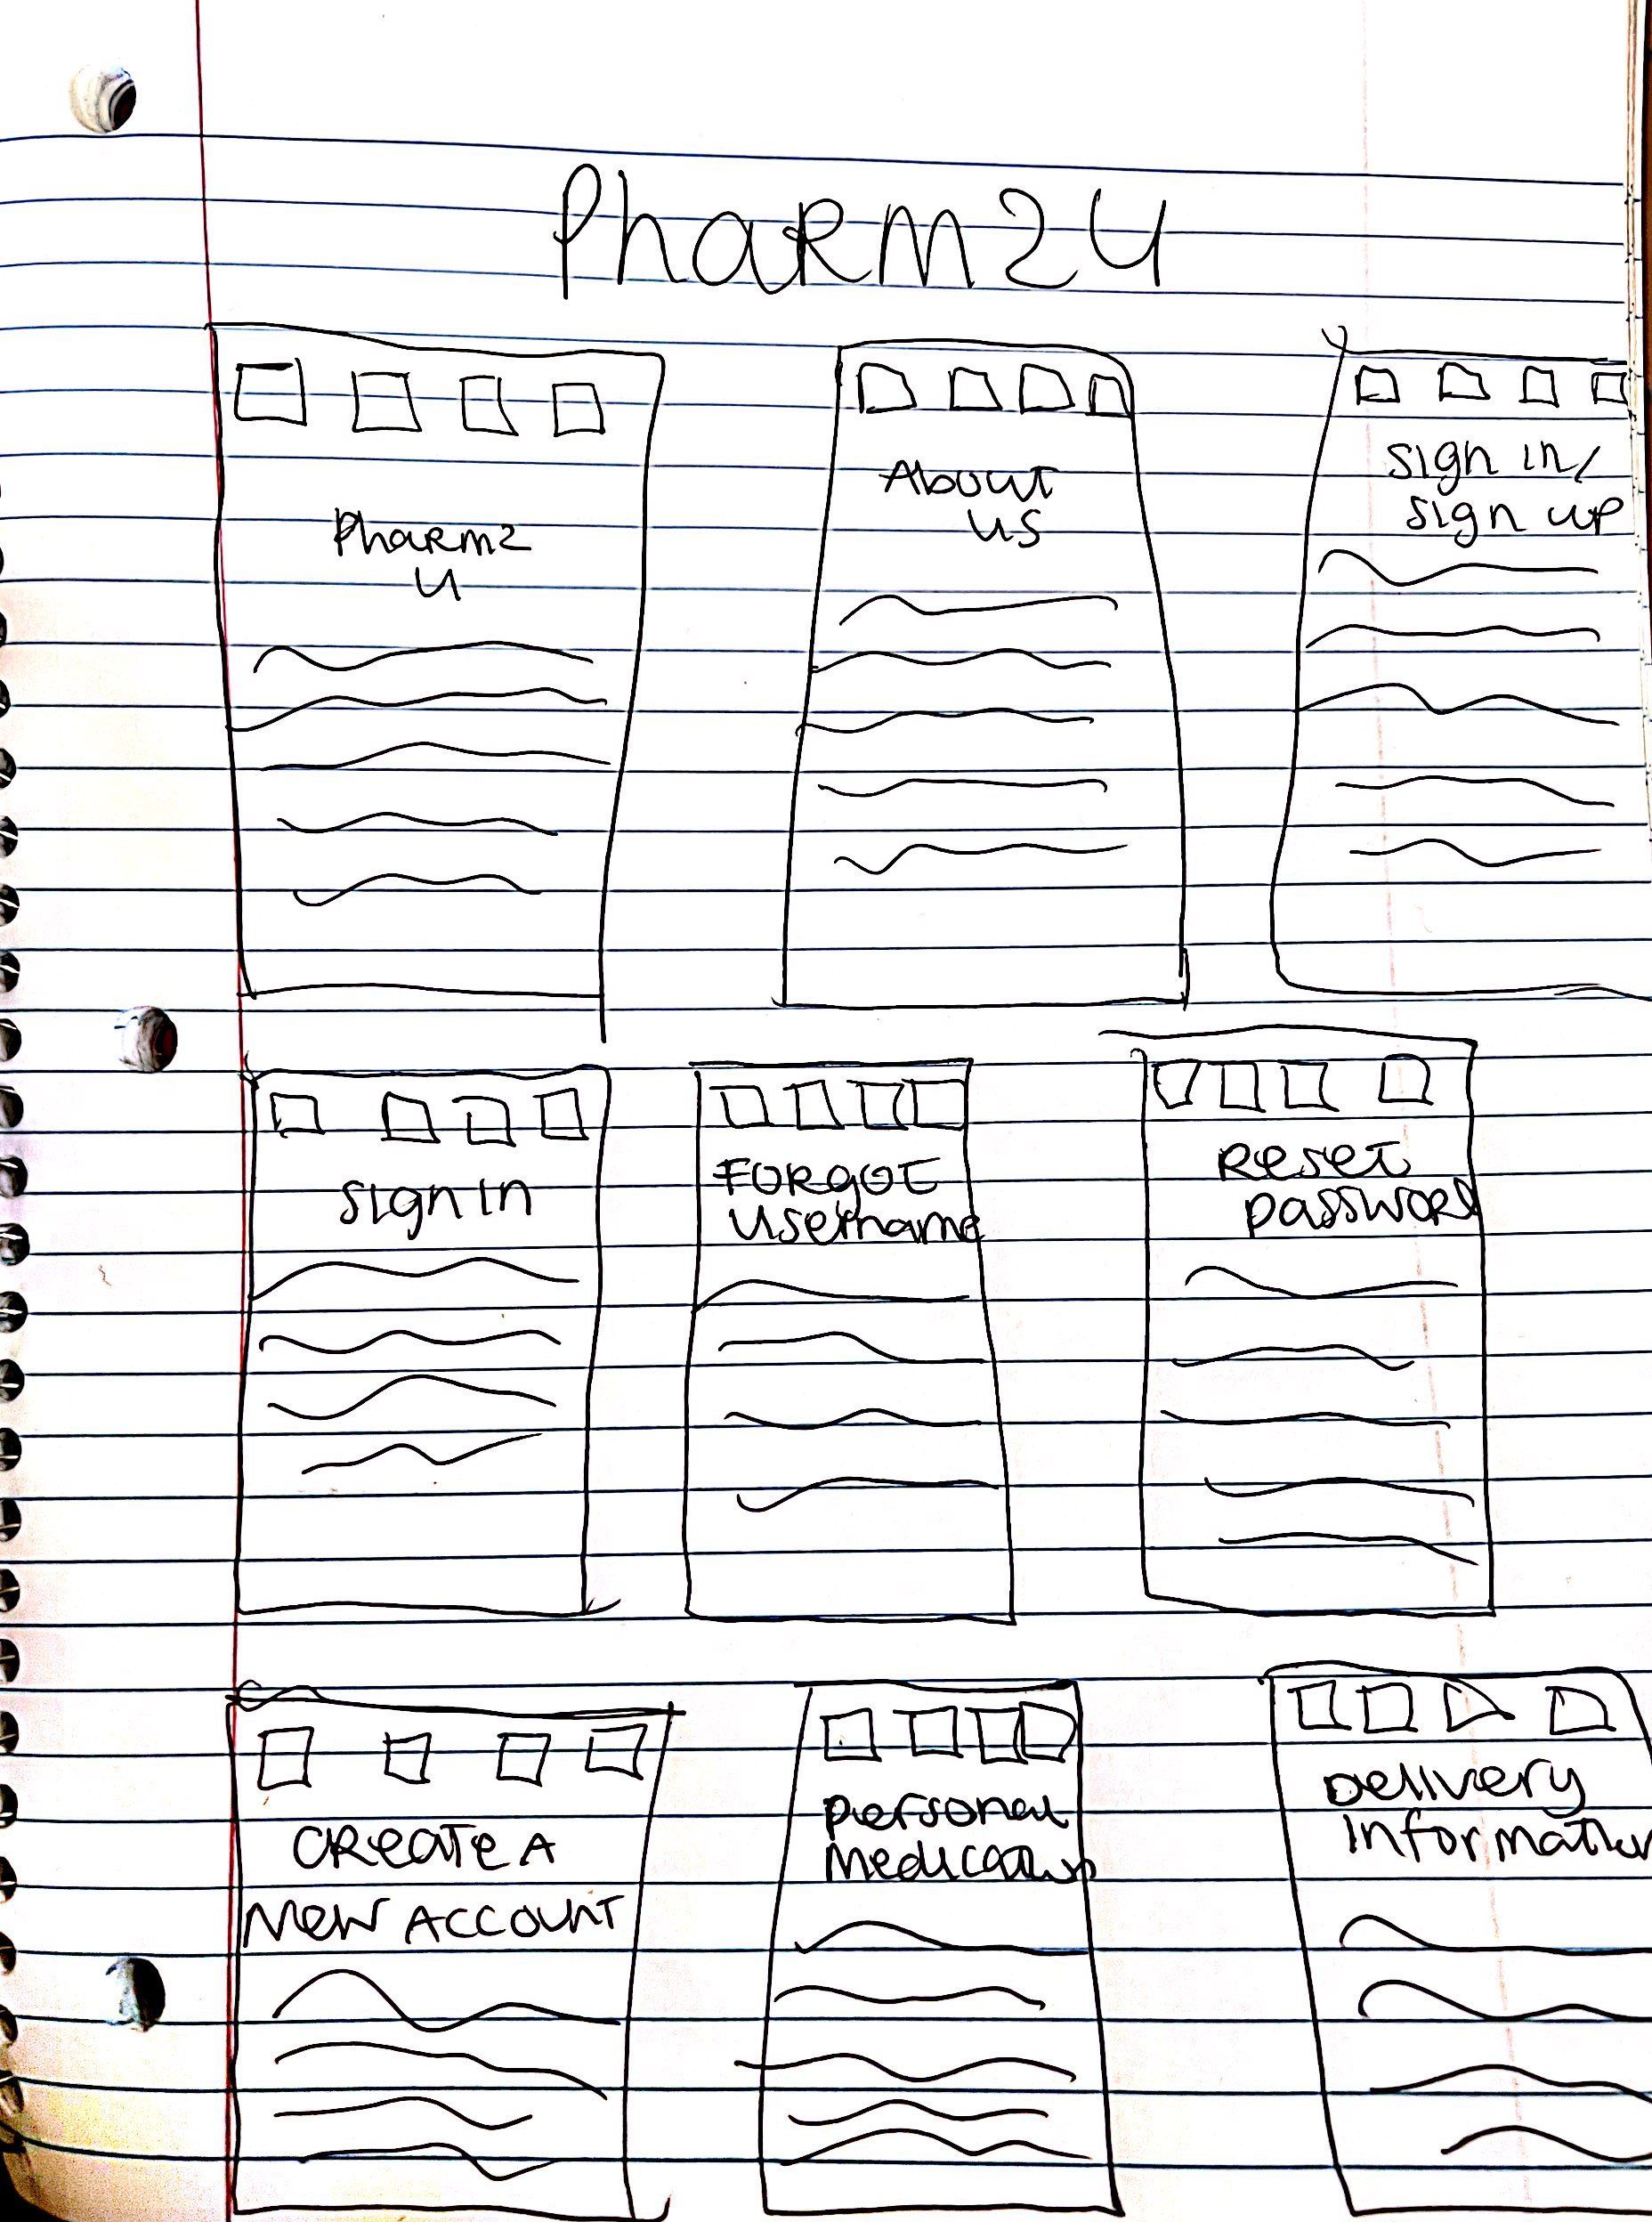 Pharm2U
Pharm2
U
About
us
sign in/
sign up
sign in
Forgot
username
Reset
password
Create A
New Account
personal
Medications
Delivery
Information